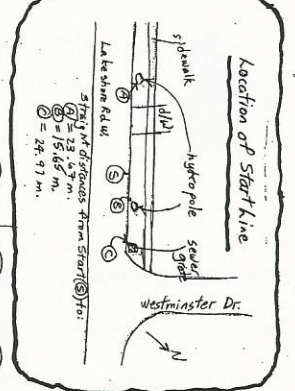 Location of Start Line
sidewalk
hydropole
sewer
grate
d/w
A
S
B
C
Lakeshore Rd W.
Westminster Dr.
N
Straight distances from Start (S) to:
A = 23.57 m.
B = 15.65 m.
C = 24.97 m.